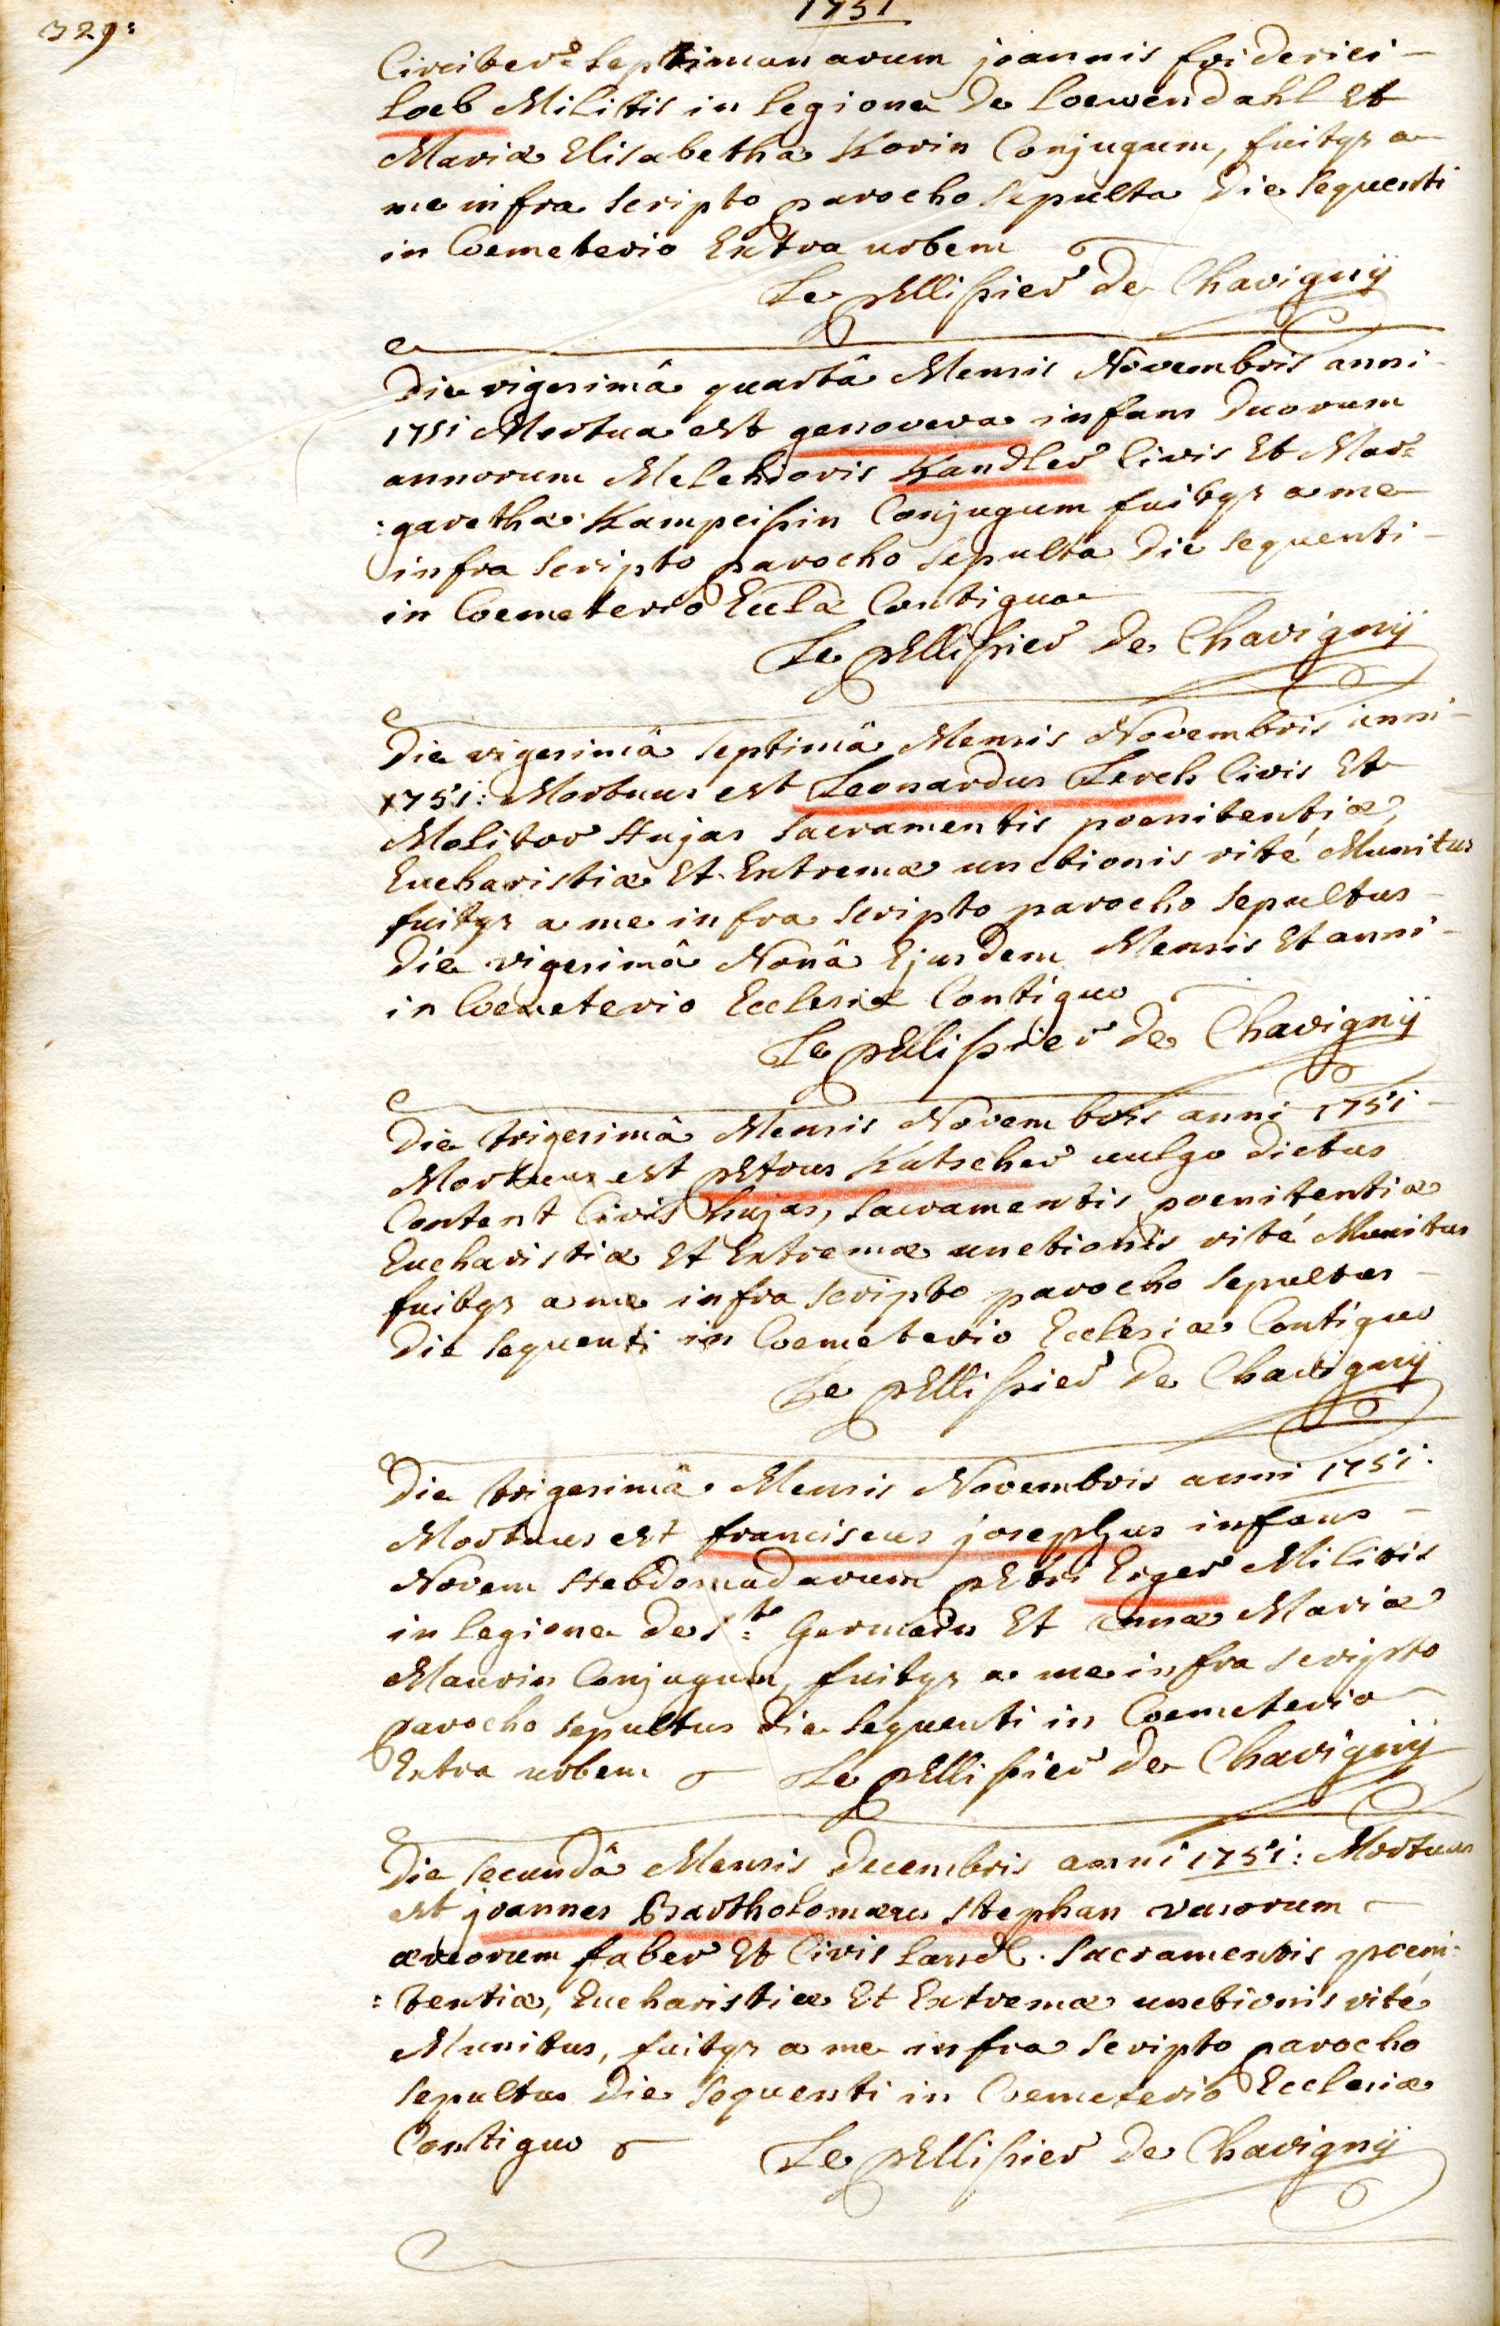 329:
1751
Circiter septimanarum joannis friderici
loeb Militis in legione de loewendahl Et
Mariæ Elisabethæ Korin Conjugum, fuitqz a
me infra scripto parocho sepulta die sequenti
in Coemeterio Extra urbem
Le pEllissier de Chavignÿ
Die vigesimâ quartâ Mensis Novembris anni
1751 Mortua est genoveva infans duorum
annorum Melchioris Kandler Civis Et Mar=
:garethæ Kampeissin Conjugum fuitqz a me
infra scripto parocho sepulta die sequenti
in Coemeterio Eccłæ Contiguo
Le pEllissier de Chavignÿ
Die vigesimâ septimâ Mensis Novembris anni
1751: Mortuus est Leonardus Lerch Civis Et
Molitor Hujas sacramentis poenitentiæ,
Eucharistiæ Et Extremæ unctionis rité Munitus
fuitqz a me infra scripto parocho sepultus
die vigesimâ Nonâ Ejusdem Mensis Et anni
in Coemeterio Ecclesiæ Contiguo
Le pEllissier de Chavignÿ
Die trigesimâ Mensis Novembris anni 1751
Mortuus est pEtrus Kútscher vulgo dictus
Content Civis hujas, sacramentis poenitentiæ
Eucharistiæ Et Extremæ unctionis rité Munitus
fuitqz a me infra scripto parocho sepultus
die sequenti in Coemeterio Ecclesiæ Contiguo
Le pEllissier de Chavignÿ
Die trigesimâ Mensis Novembris anni 1751.
Mortuus est franciscus josephus infans
Novem Hebdomadarum pEtri Erger Militis
in legione de st: Germain Et annæ Mariæ
Maurin Conjugum, fuitqz a me infra scripto
parocho sepultus die sequenti in Coemeterio
Extra urbem Le pEllissier de Chavignÿ
Die secundâ Mensis decembris anni 1751: Mortuus
est joannes Bartholomæus stephan vasorum
æreorum faber Et Civis land. sacramentis poeni=
:tentiæ, Eucharistiæ Et Extremæ unctionis rité
Munitus, fuitqz a me infra scripto parocho
sepultus die sequenti in Coemeterio Ecclesiæ
Contiguo Le pEllissier de Chavignÿ